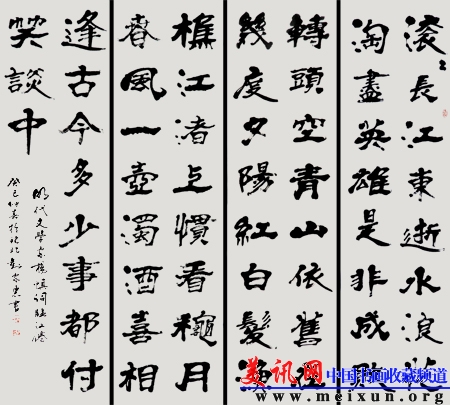 滚〻長江東逝水浪花
淘盡英雄是非成敗
轉頭空青山依舊在
幾度夕陽紅白髮漁
樵江渚上慣看穐月
春風一壺濁酒喜相
逢古今多少事都付
笑談中
明代文學家楊慎詞臨江仙
癸巳仲春於
美讯网 中国书画收藏频道
www.meixun.org